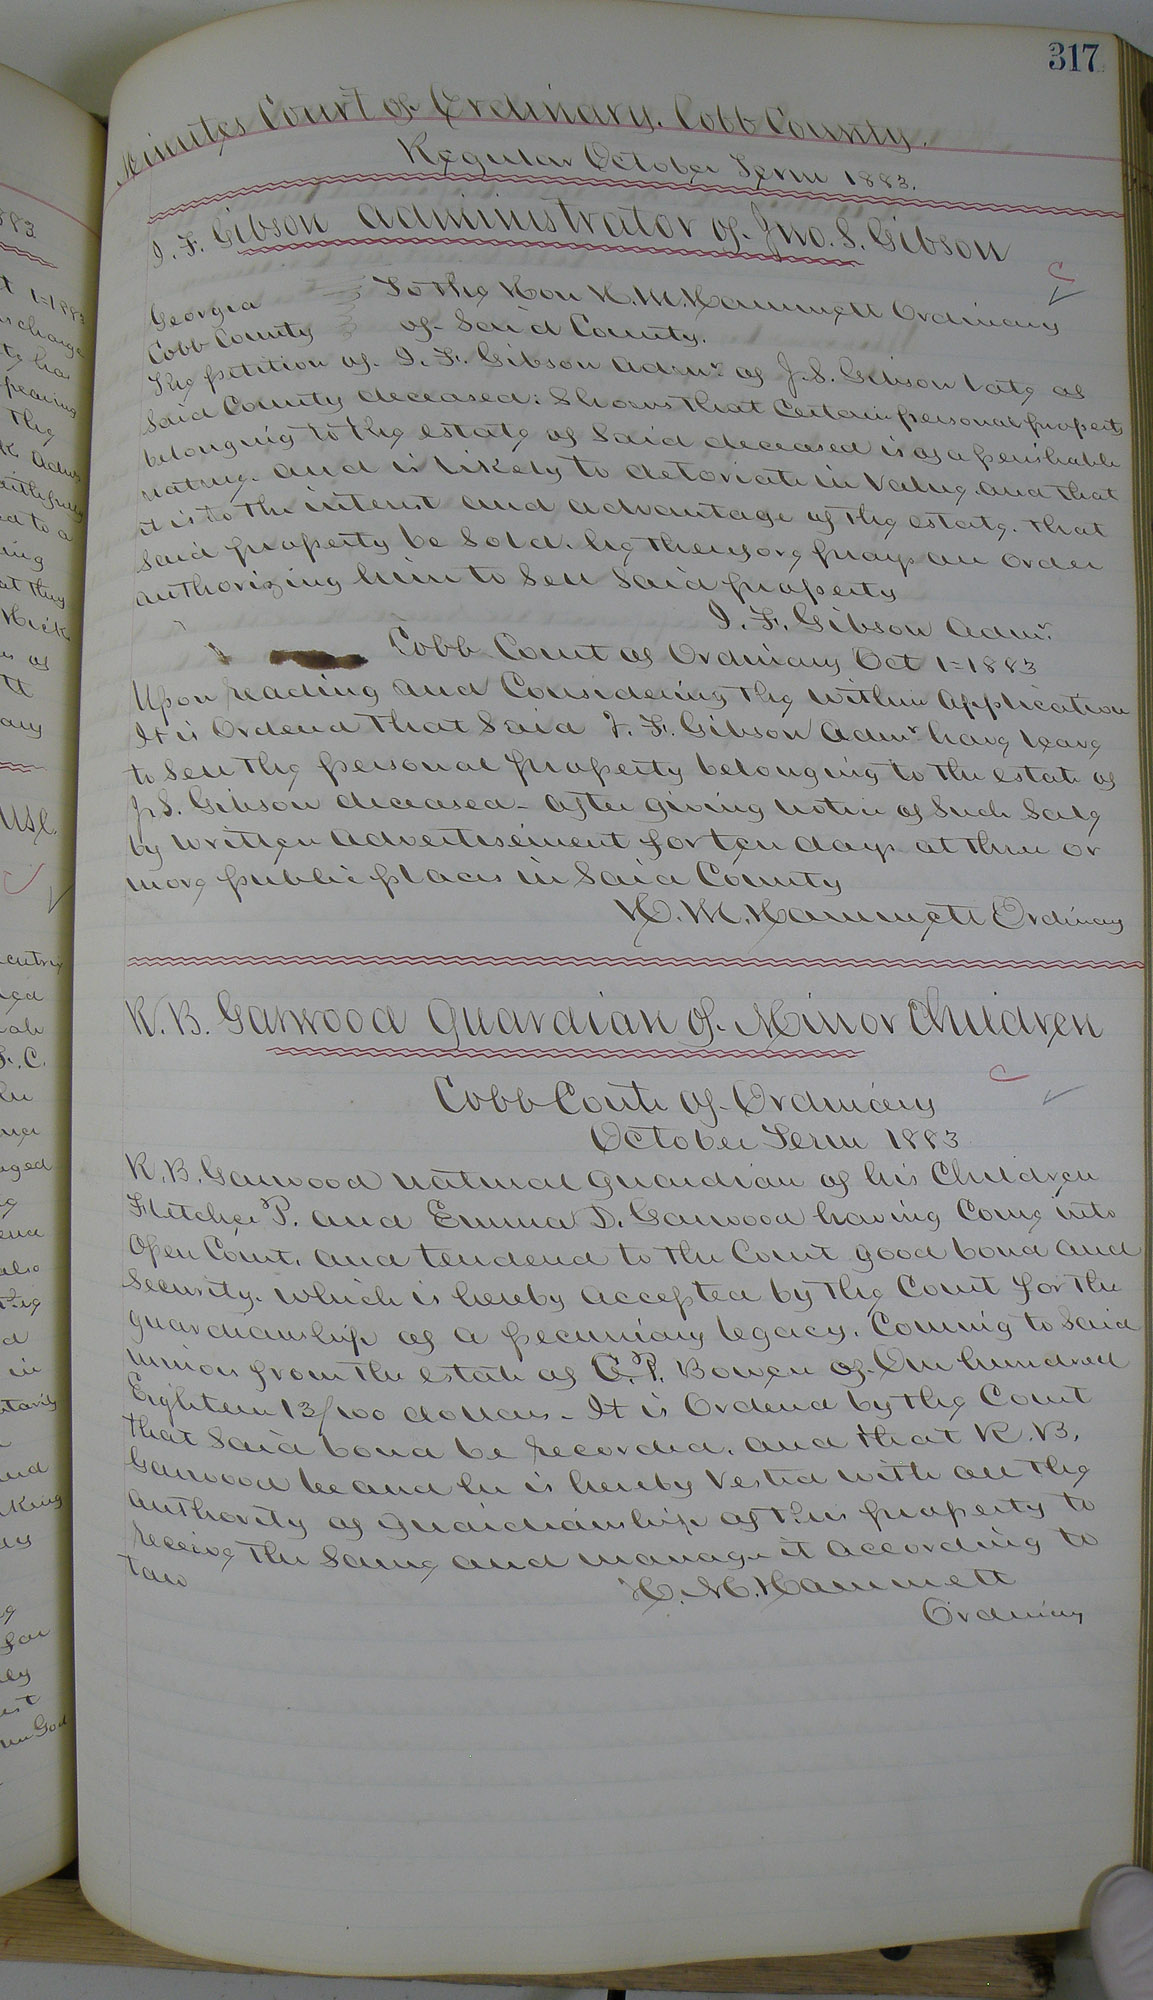 317
Minutes Court of Ordinary. Cobb County.
Regular October Term 1883.
I. F. Gibson Administrator of Jno. S. Gibson
Georgia To the Hon H. M. Hammett Ordinary
Cobb County of Said County.
The petition of I. F. Gibson Admr of J. S. Gibson late of
Said County deceased: Shows that Certain personal property
belonging to the estate of Said deceased is of a perishable
nature. and is likely to detoriate in Value and that
it is to the interest and advantage of the estate. that
Said property be Sold. he therefore prays an order
authorizing him to Sell Said property
I. F. Gibson Admr.
Cobb Court of Ordinary Oct 1=1883
Upon reading and Considering the within Application
It is Ordered that Said I. F. Gibson Admr have leave
to Sell the personal property belonging to the estate of
J. S. Gibson deceased - after giving notice of Such Sale
by written Advertisement for ten days at three or
more public places in Said County
H. M. Hammett Ordinary
R. B. Garwood Guardian of Minor Children
Cobb Court of Ordinary
October Term 1883
R. B. Garwood natural guardian of his Children
Fletcher P. and Emma D. Garwood having Come into
Open Court. and tendered to the Court good bond and
Security. which is hereby accepted by the Court for the
guardianship of a pecuniary legacy. Coming to Said
minors from the estate of C. P. Bowen of One hundred
Eighteen 13/100 dollars - It is Ordered by the Court
that Said bond be recorded. and that R. B.
Garwood be and he is hereby Vested with all the
authority of guardianship of this property to
receive the Same and manage it according to
law
H. M. Hammett
Ordinary